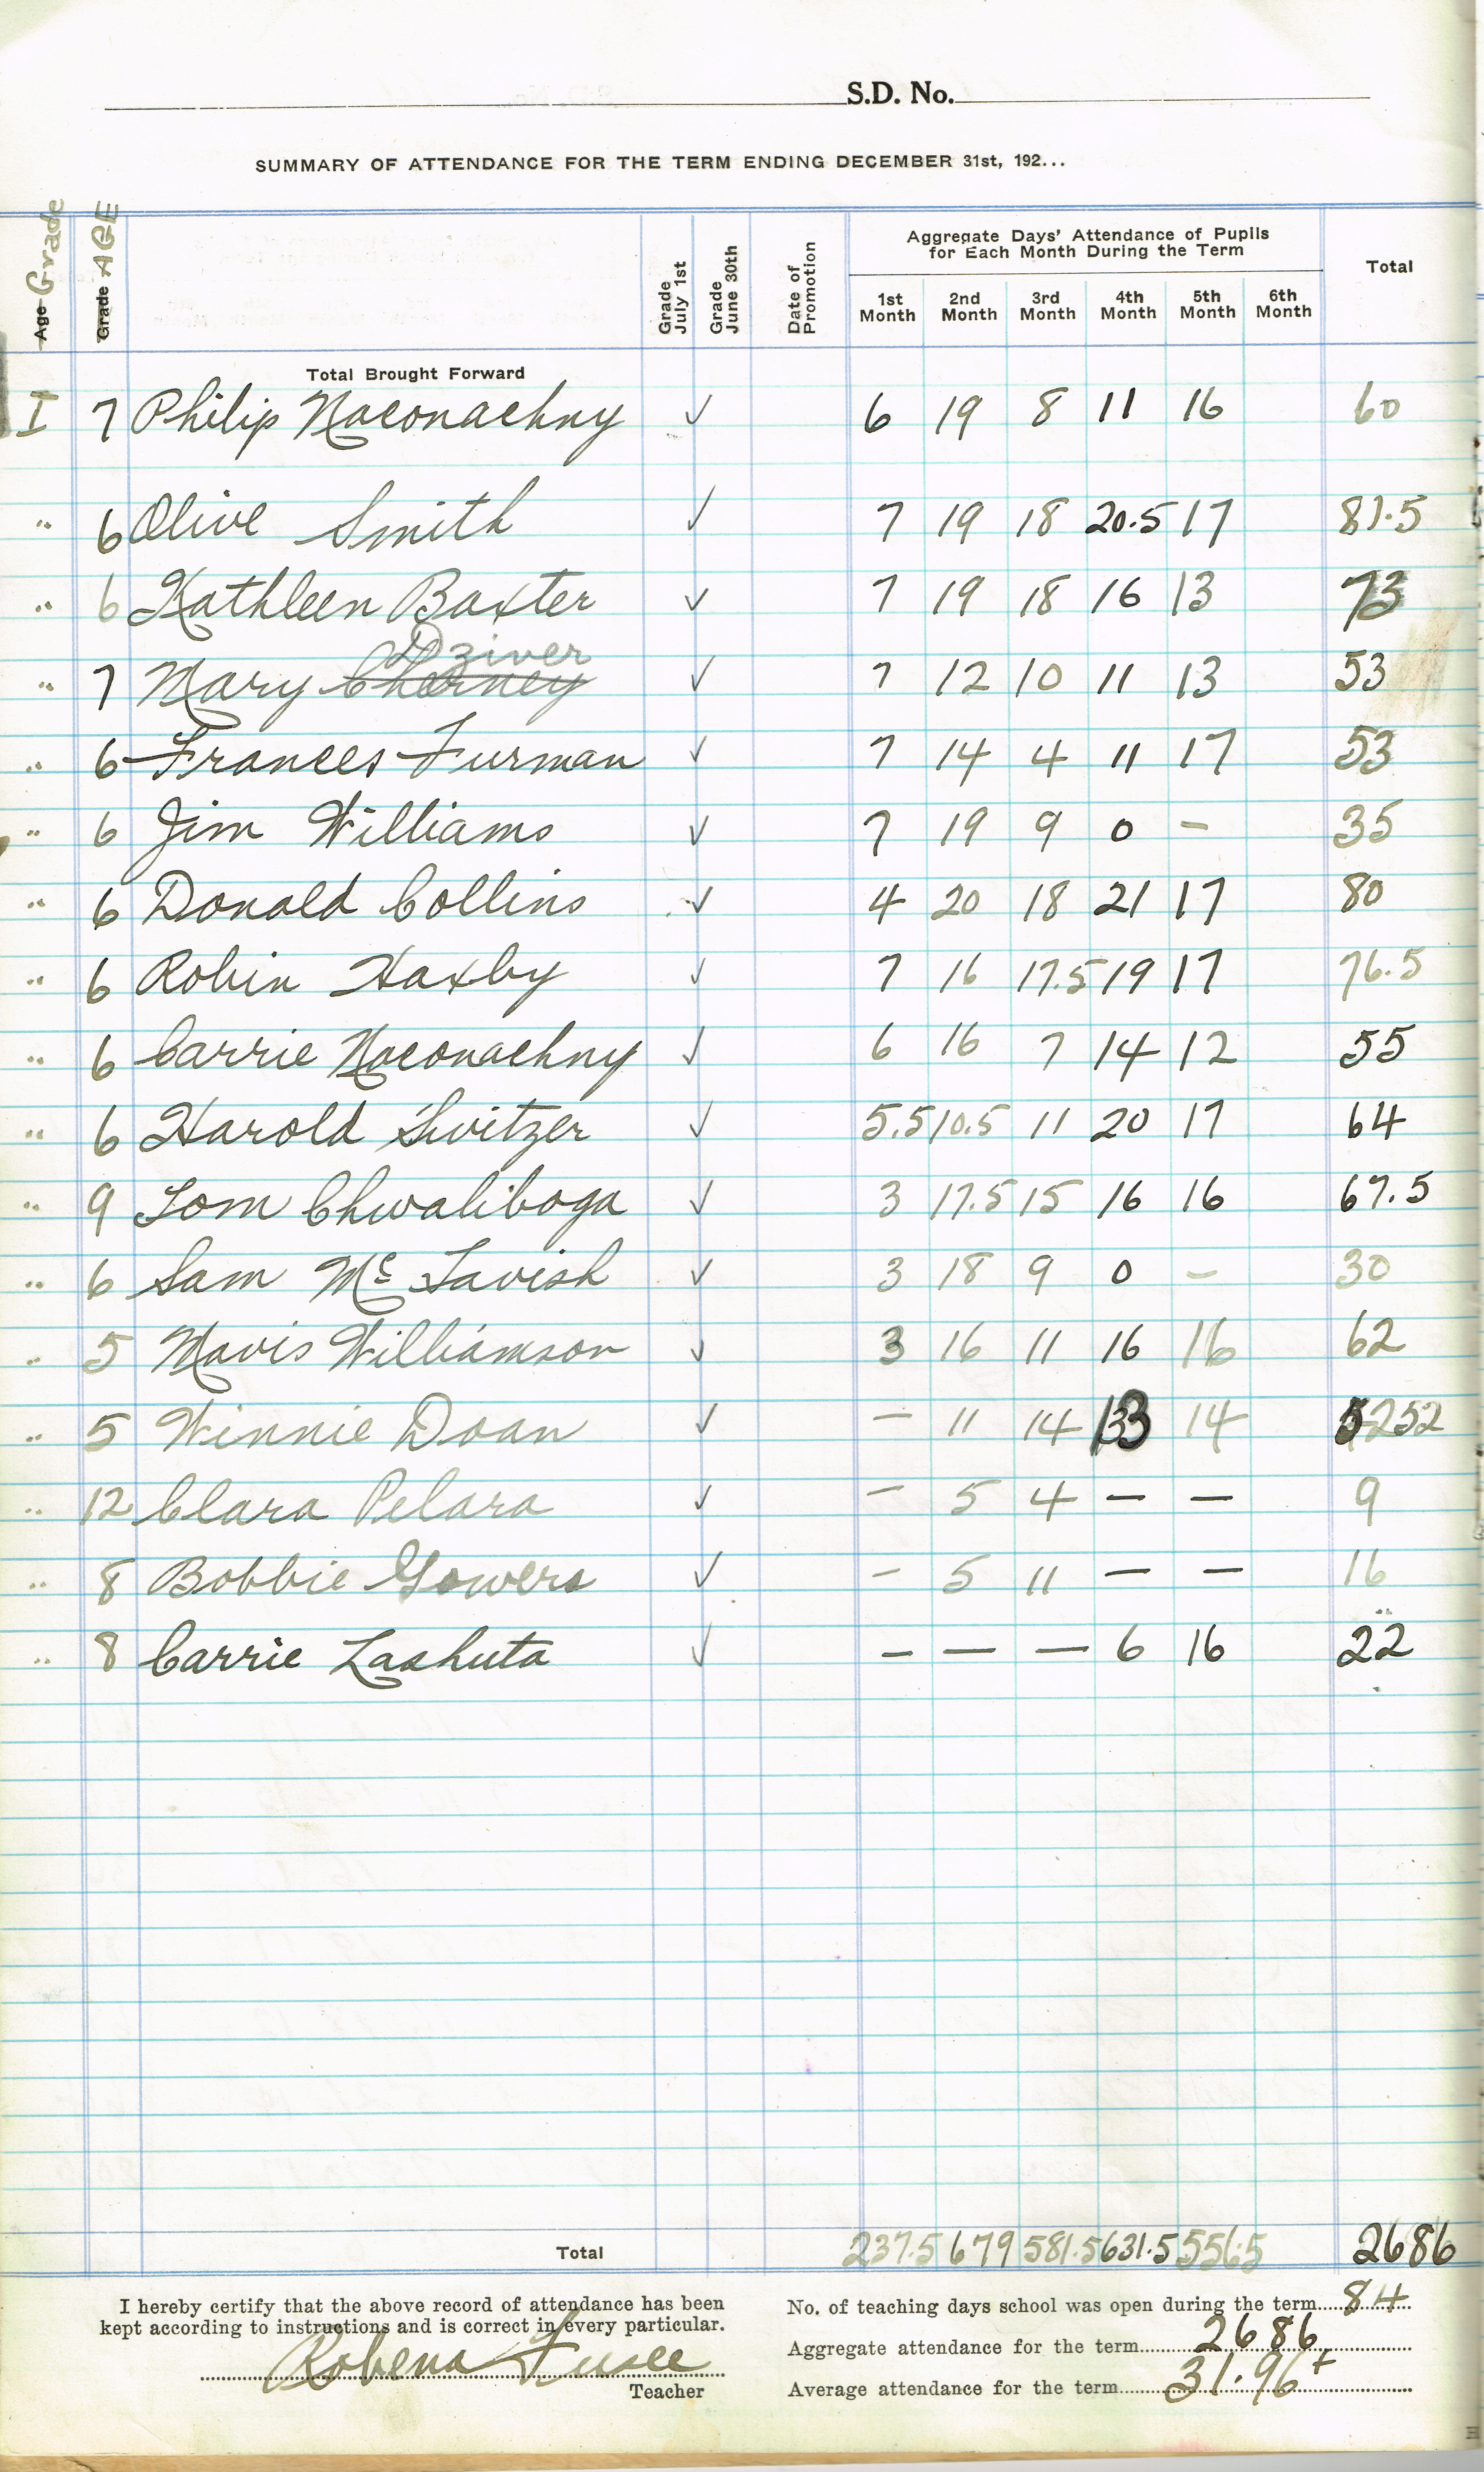 S.D. No.
SUMMARY OF ATTENDANCE FOR THE TERM ENDING DECEMBER 31st, 192...
Age Grade
Grade AGE
Grade July 1st
Grade June 30th
Date of Promotion
Aggregate Days' Attendance of Pupils
for Each Month During the Term
Total
1st Month 2nd Month 3rd Month 4th Month 5th Month 6th Month
Total Brought Forward
I 7 Philip Naconachny ✓ 6 19 8 11 16 60
" 6 Olive Smith ✓ 7 19 18 20.5 17 81.5
" 6 Kathleen Baxter ✓ 7 19 18 16 13 73
Dziver
" 7 Mary Cherney ✓ 7 12 10 11 13 53
" 6 Frances Furman ✓ 7 14 4 11 17 53
" 6 Jim Williams ✓ 7 19 9 0 - 35
" 6 Donald Collins ✓ 4 20 18 21 17 80
" 6 Robin Haxby ✓ 7 16 17.5 19 17 76.5
" 6 Carrie Naconachny ✓ 6 16 7 14 12 55
" 6 Harold Switzer ✓ 5.5 10.5 11 20 17 64
" 9 Tom Chwaliboga ✓ 3 17.5 15 16 16 67.5
" 6 Sam Mc Tavish ✓ 3 18 9 0 - 30
" 5 Mavis Williamson ✓ 3 16 11 16 16 62
" 5 Winnie Doan ✓ - 11 14 13 14 52 52
" 12 Clara Pelara ✓ - 5 4 - - 9
" 8 Bobbie Gowers ✓ - 5 11 - - 16
" 8 Carrie Lashuta ✓ - - - 6 16 22
Total 237.5 679 581.5 631.5 556.5 2686
I hereby certify that the above record of attendance has been
kept according to instructions and is correct in every particular.
Robena
Teacher
No. of teaching days school was open during the term 84
Aggregate attendance for the term 2686
Average attendance for the term 31.96+